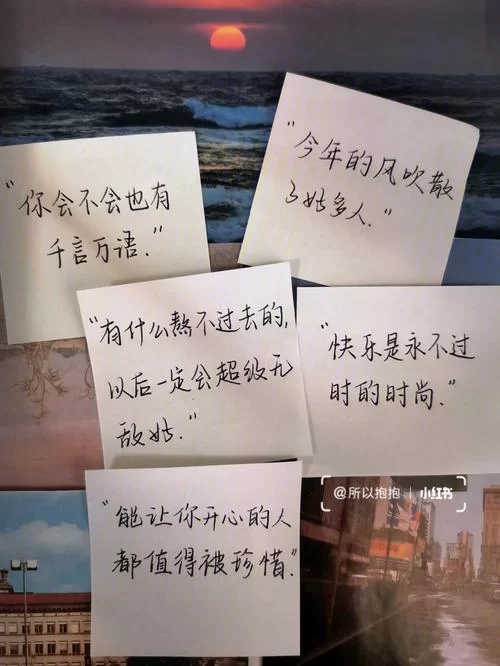 "你会不会也有
千言万语."
"今年的风吹散
了好多人."
"有什么熬不过去的,
以后一定会超级无
敌好."
"快乐是永不过
时的时尚."
@所以抱抱 | 小红书
"能让你开心的人
都值得被珍惜."